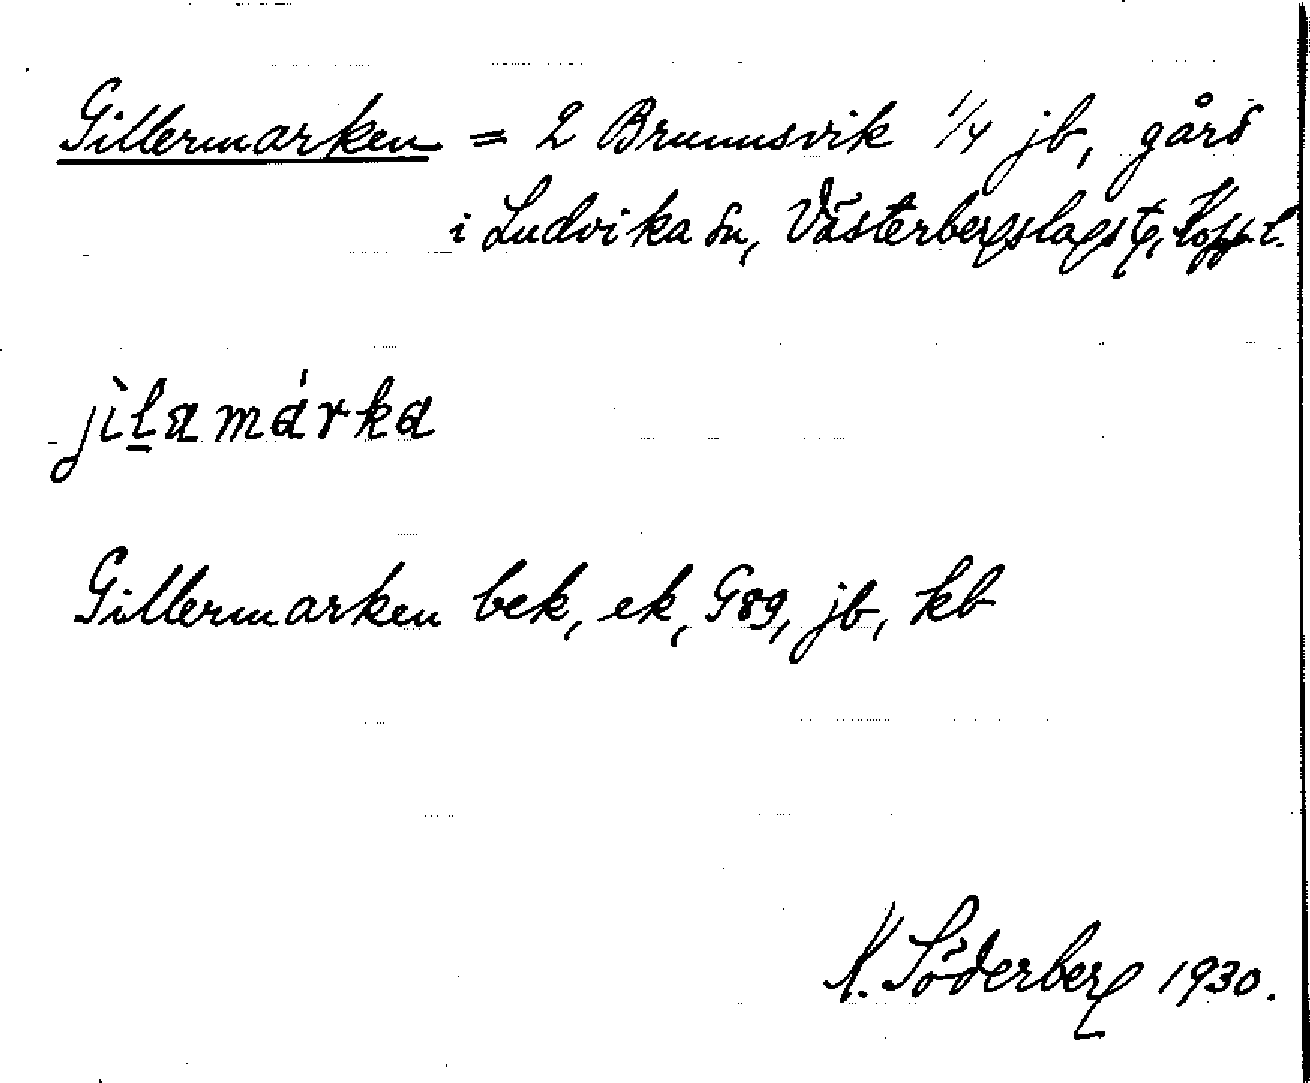 Gillermarken = 2 Brunnsvik 1/4 jb, gård
i Ludvika sn, Västerbergslags tg, Kopp. l.
jìl̠a márka
Gillermarken bek, ek, G89, jb, kb
K. Söderberg 1930.